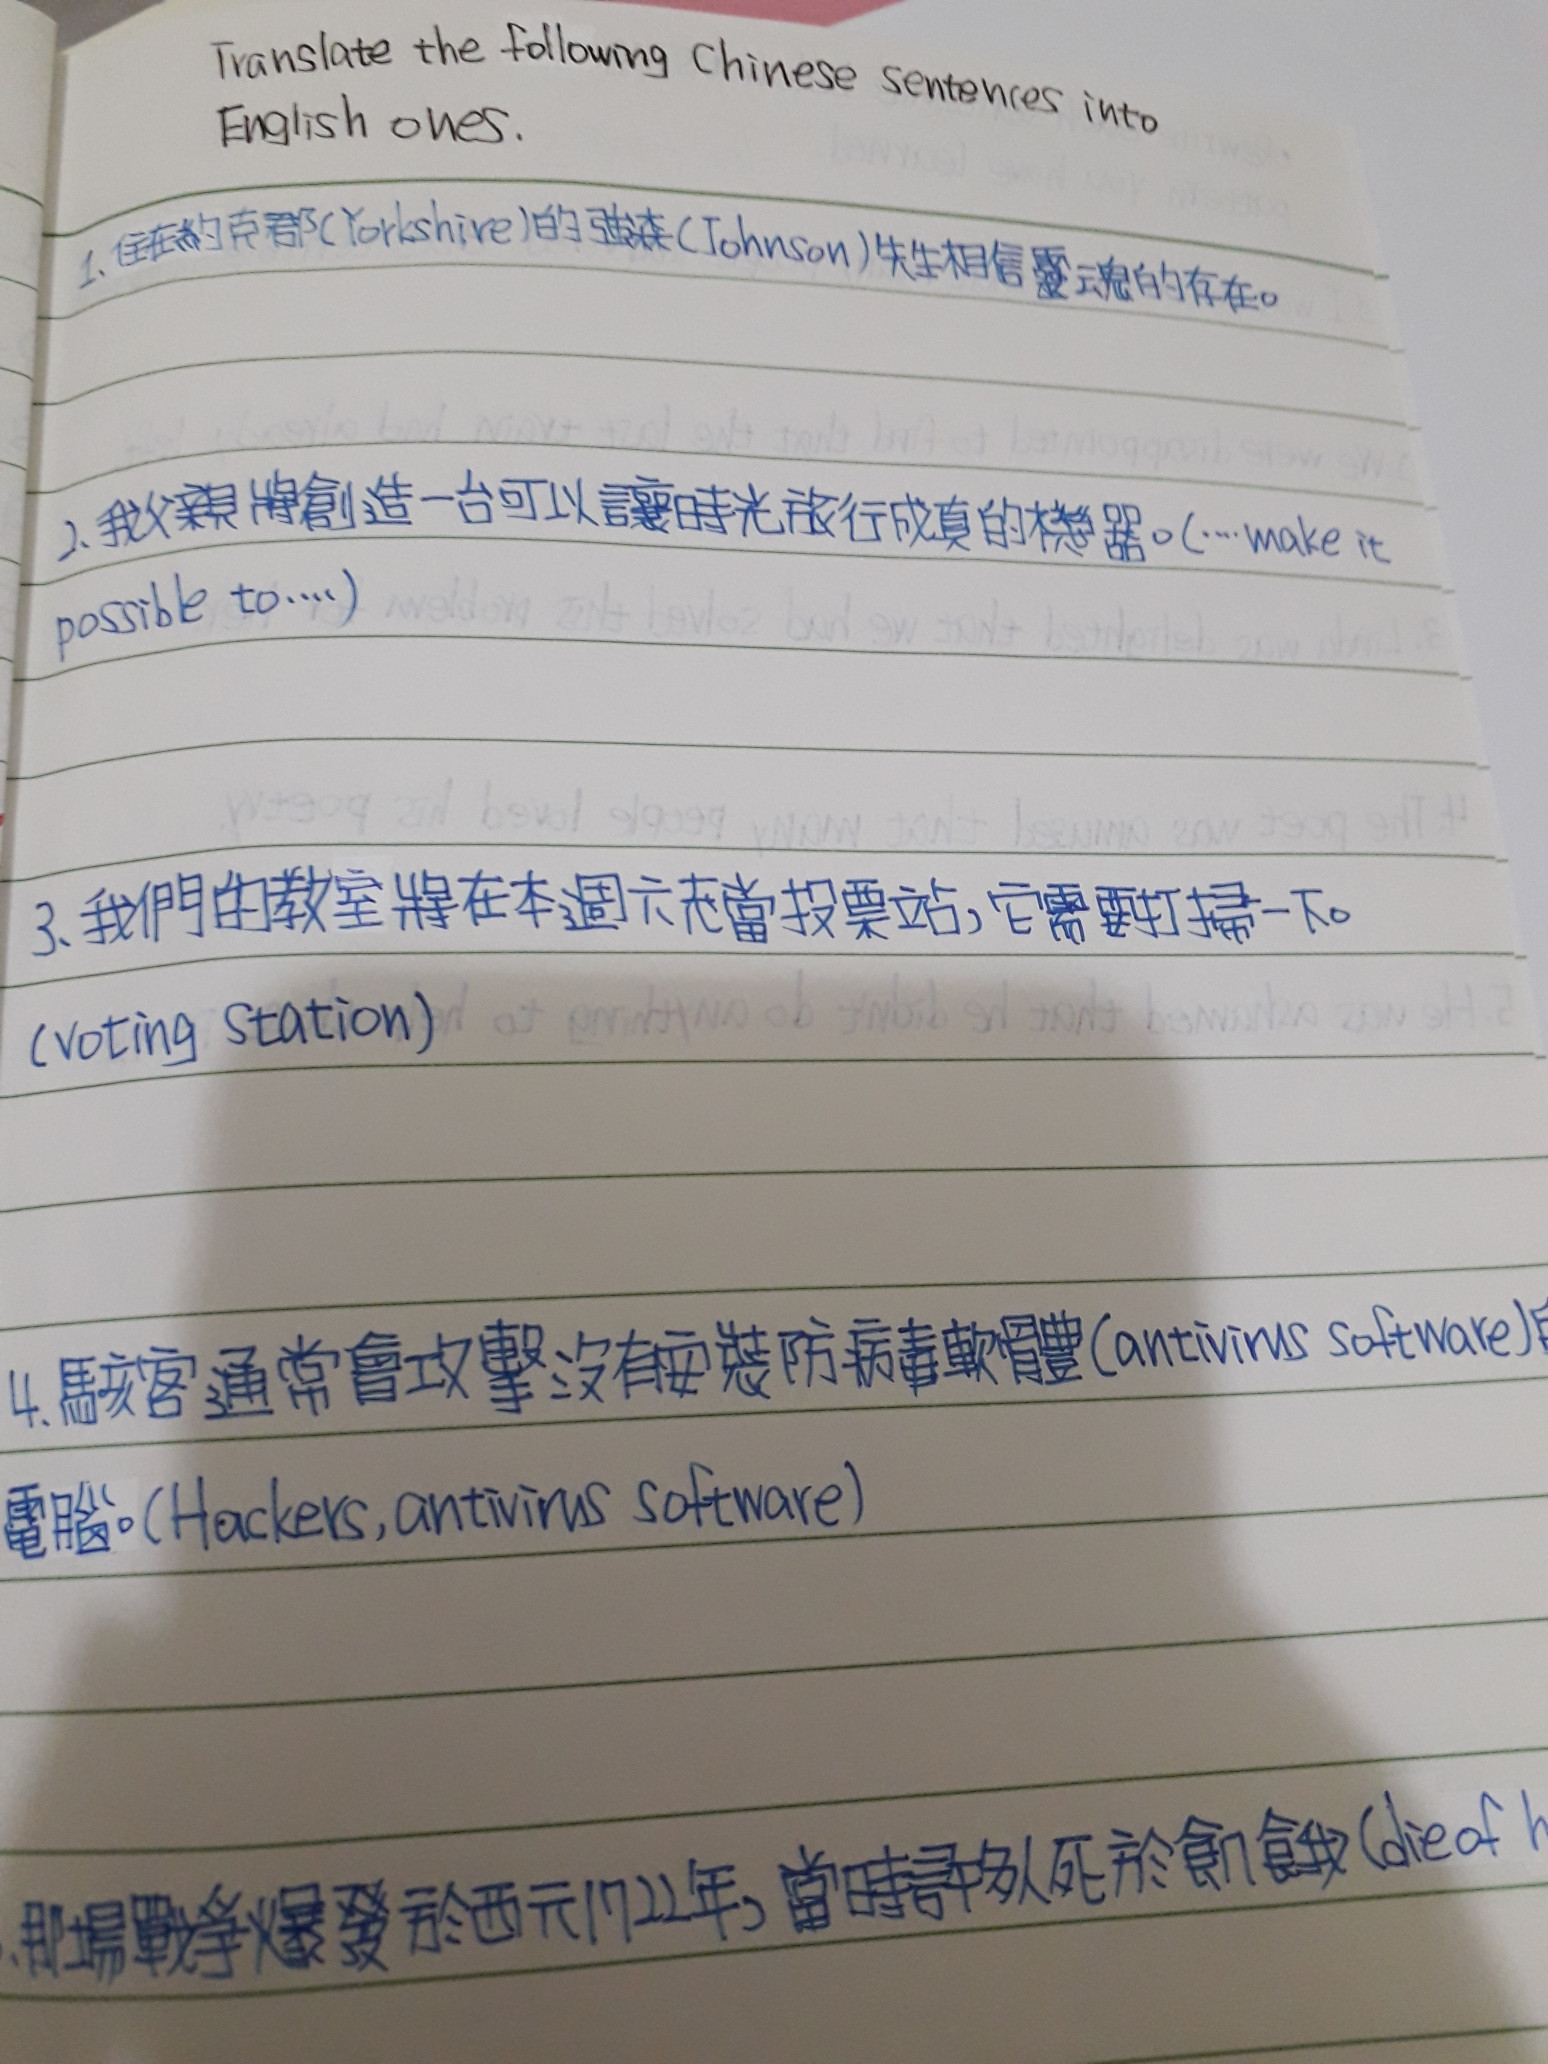 Translate the following Chinese sentences into
English ones.
1. 住在約克郡(Yorkshire)的強森(Johnson)先生相信靈魂的存在。
2、我父親將創造一台可以讓時光旅行成真的機器。(....make it
possible to....)
3、我們的教室將在本週六充當投票站,它需要打掃一下。
(voting station)
4.駭客通常會攻擊沒有安裝防病毒軟體(antivirus software)
電腦。(Hackers,antivirus software)
那場戰爭爆發於西元1722年,當時許多人死於飢餓(die of h